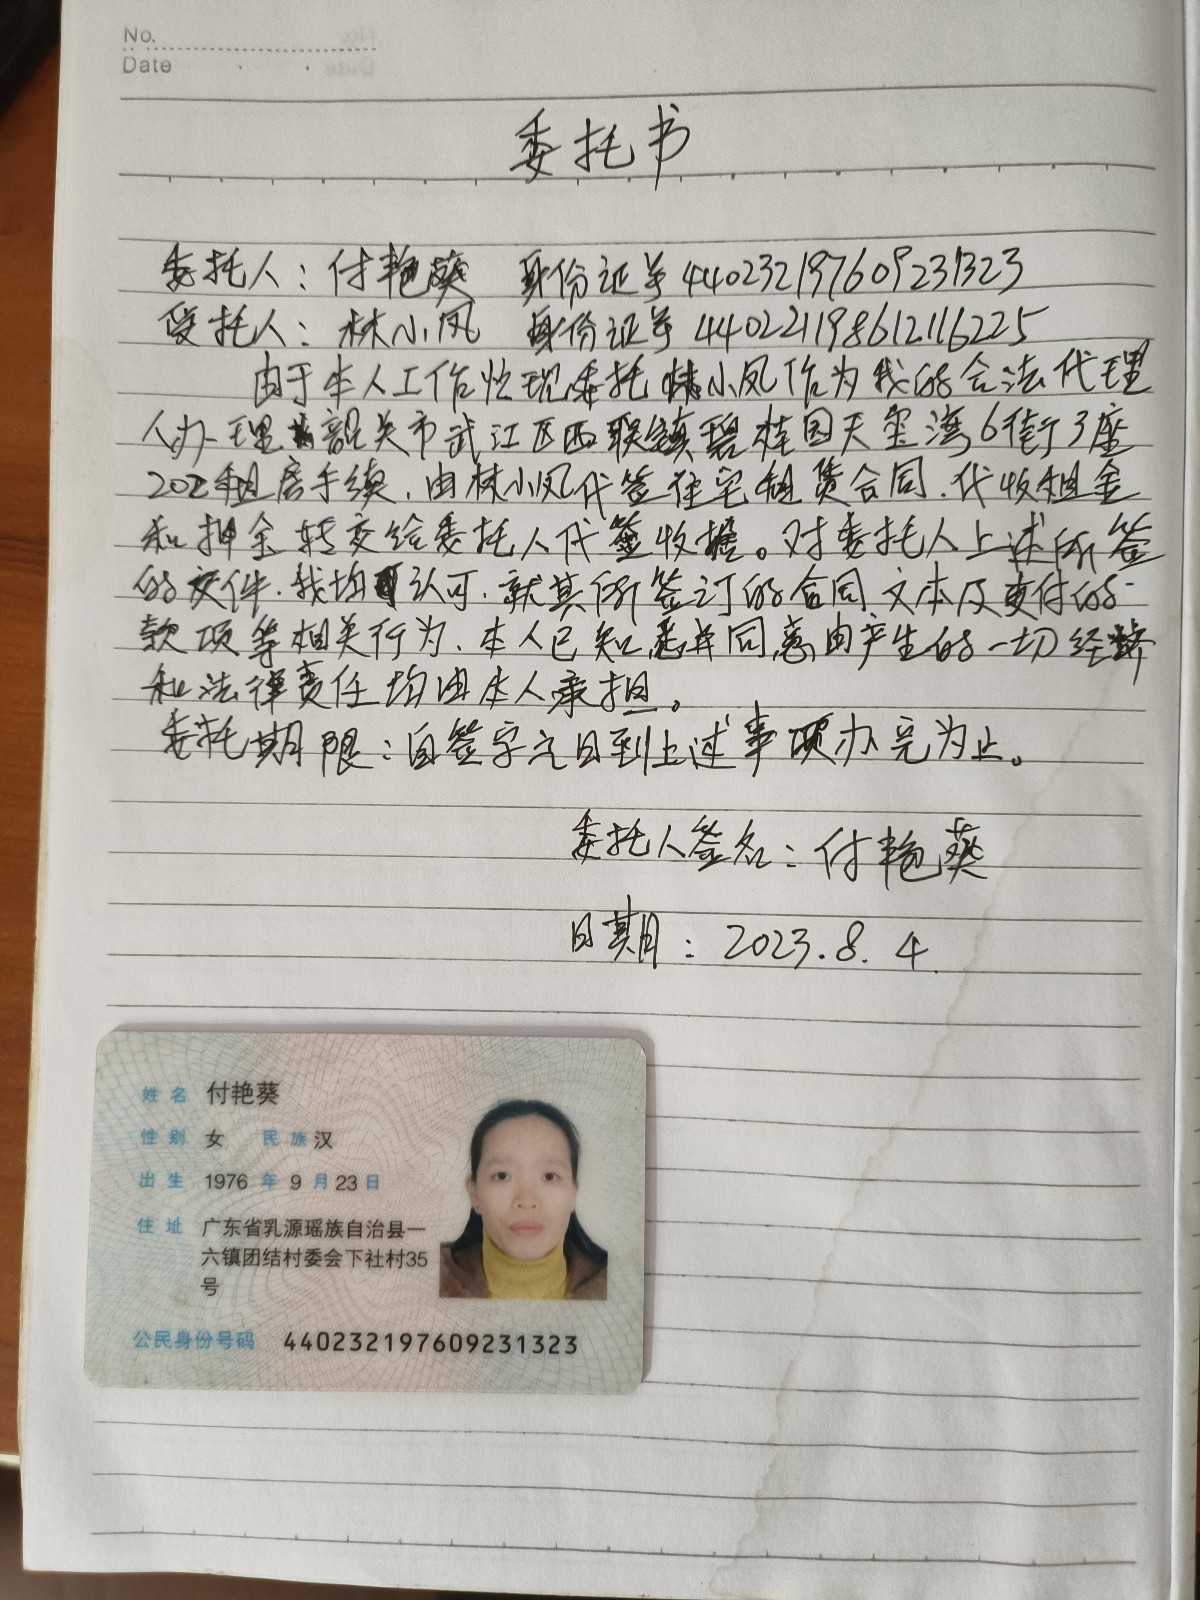 No.
Date
委托书
委托人：付艳葵 身份证号440232197609231323
受托人：林小凤 身份证号440221198612116225
由于本人工作忙现委托林小凤作为我的合法代理
人办理韶关市武江区西联镇碧桂园天玺湾6街3座
202租房手续，由林小凤代签住宅租赁合同，代收租金
和押金转交给委托人代签收据。对委托人上述所签
的文件，我均认可，就其所签订的合同文本及交付的
款项等相关行为，本人已知悉并同意由产生的一切经济
和法律责任均由本人承担。
委托期限：自签字之日到上述事项办完为止。
委托人签名：付艳葵
日期：2023.8.4.
姓名 付艳葵
性别 女 民族 汉
出生 1976 年 9 月 23 日
住址 广东省乳源瑶族自治县一
六镇团结村委会下社村35
号
公民身份号码 440232197609231323